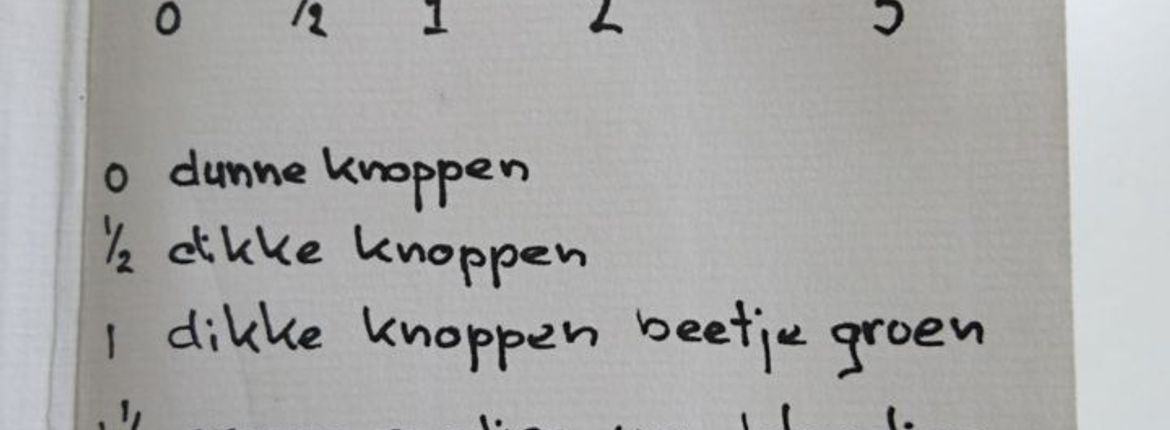 0 1/2 1 2
0 dunne knoppen
1/2 dikke knoppen
1 dikke knoppen beetje groen